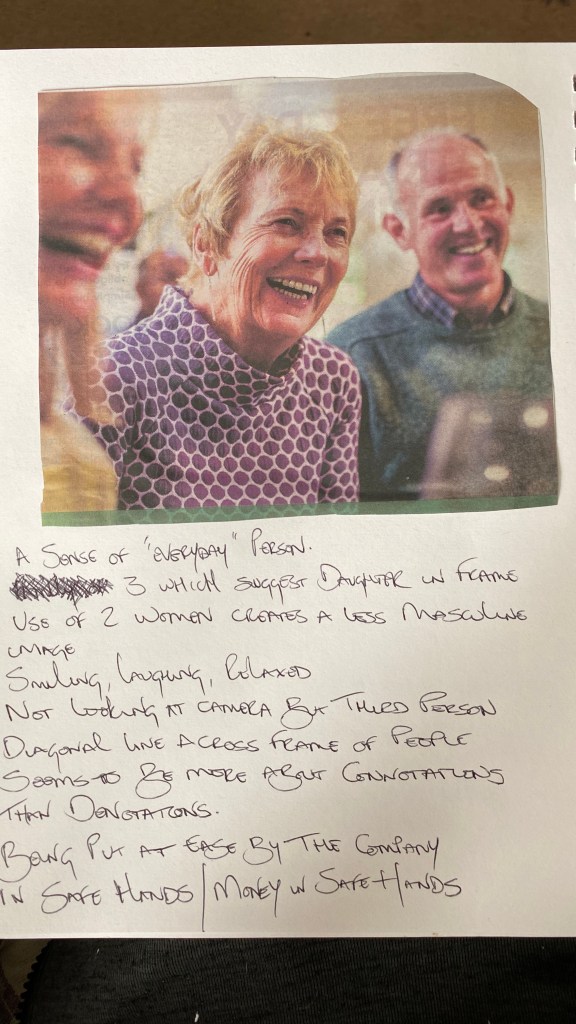 A SENSE OF "EVERYDAY" PERSON.
3 WHICH SUGGEST DAUGHTER IN FRAME
USE OF 2 WOMEN CREATES A LESS MASCULINE
IMAGE
SMILING, LAUGHING, RELAXED
NOT LOOKING AT CAMERA BUT THIRD PERSON
DIAGONAL LINE ACROSS FRAME OF PEOPLE
SEEMS TO BE MORE ABOUT CONNOTATIONS
THAN DENOTATIONS.
BEING PUT AT EASE BY THE COMPANY
IN SAFE HANDS / MONEY IN SAFE HANDS